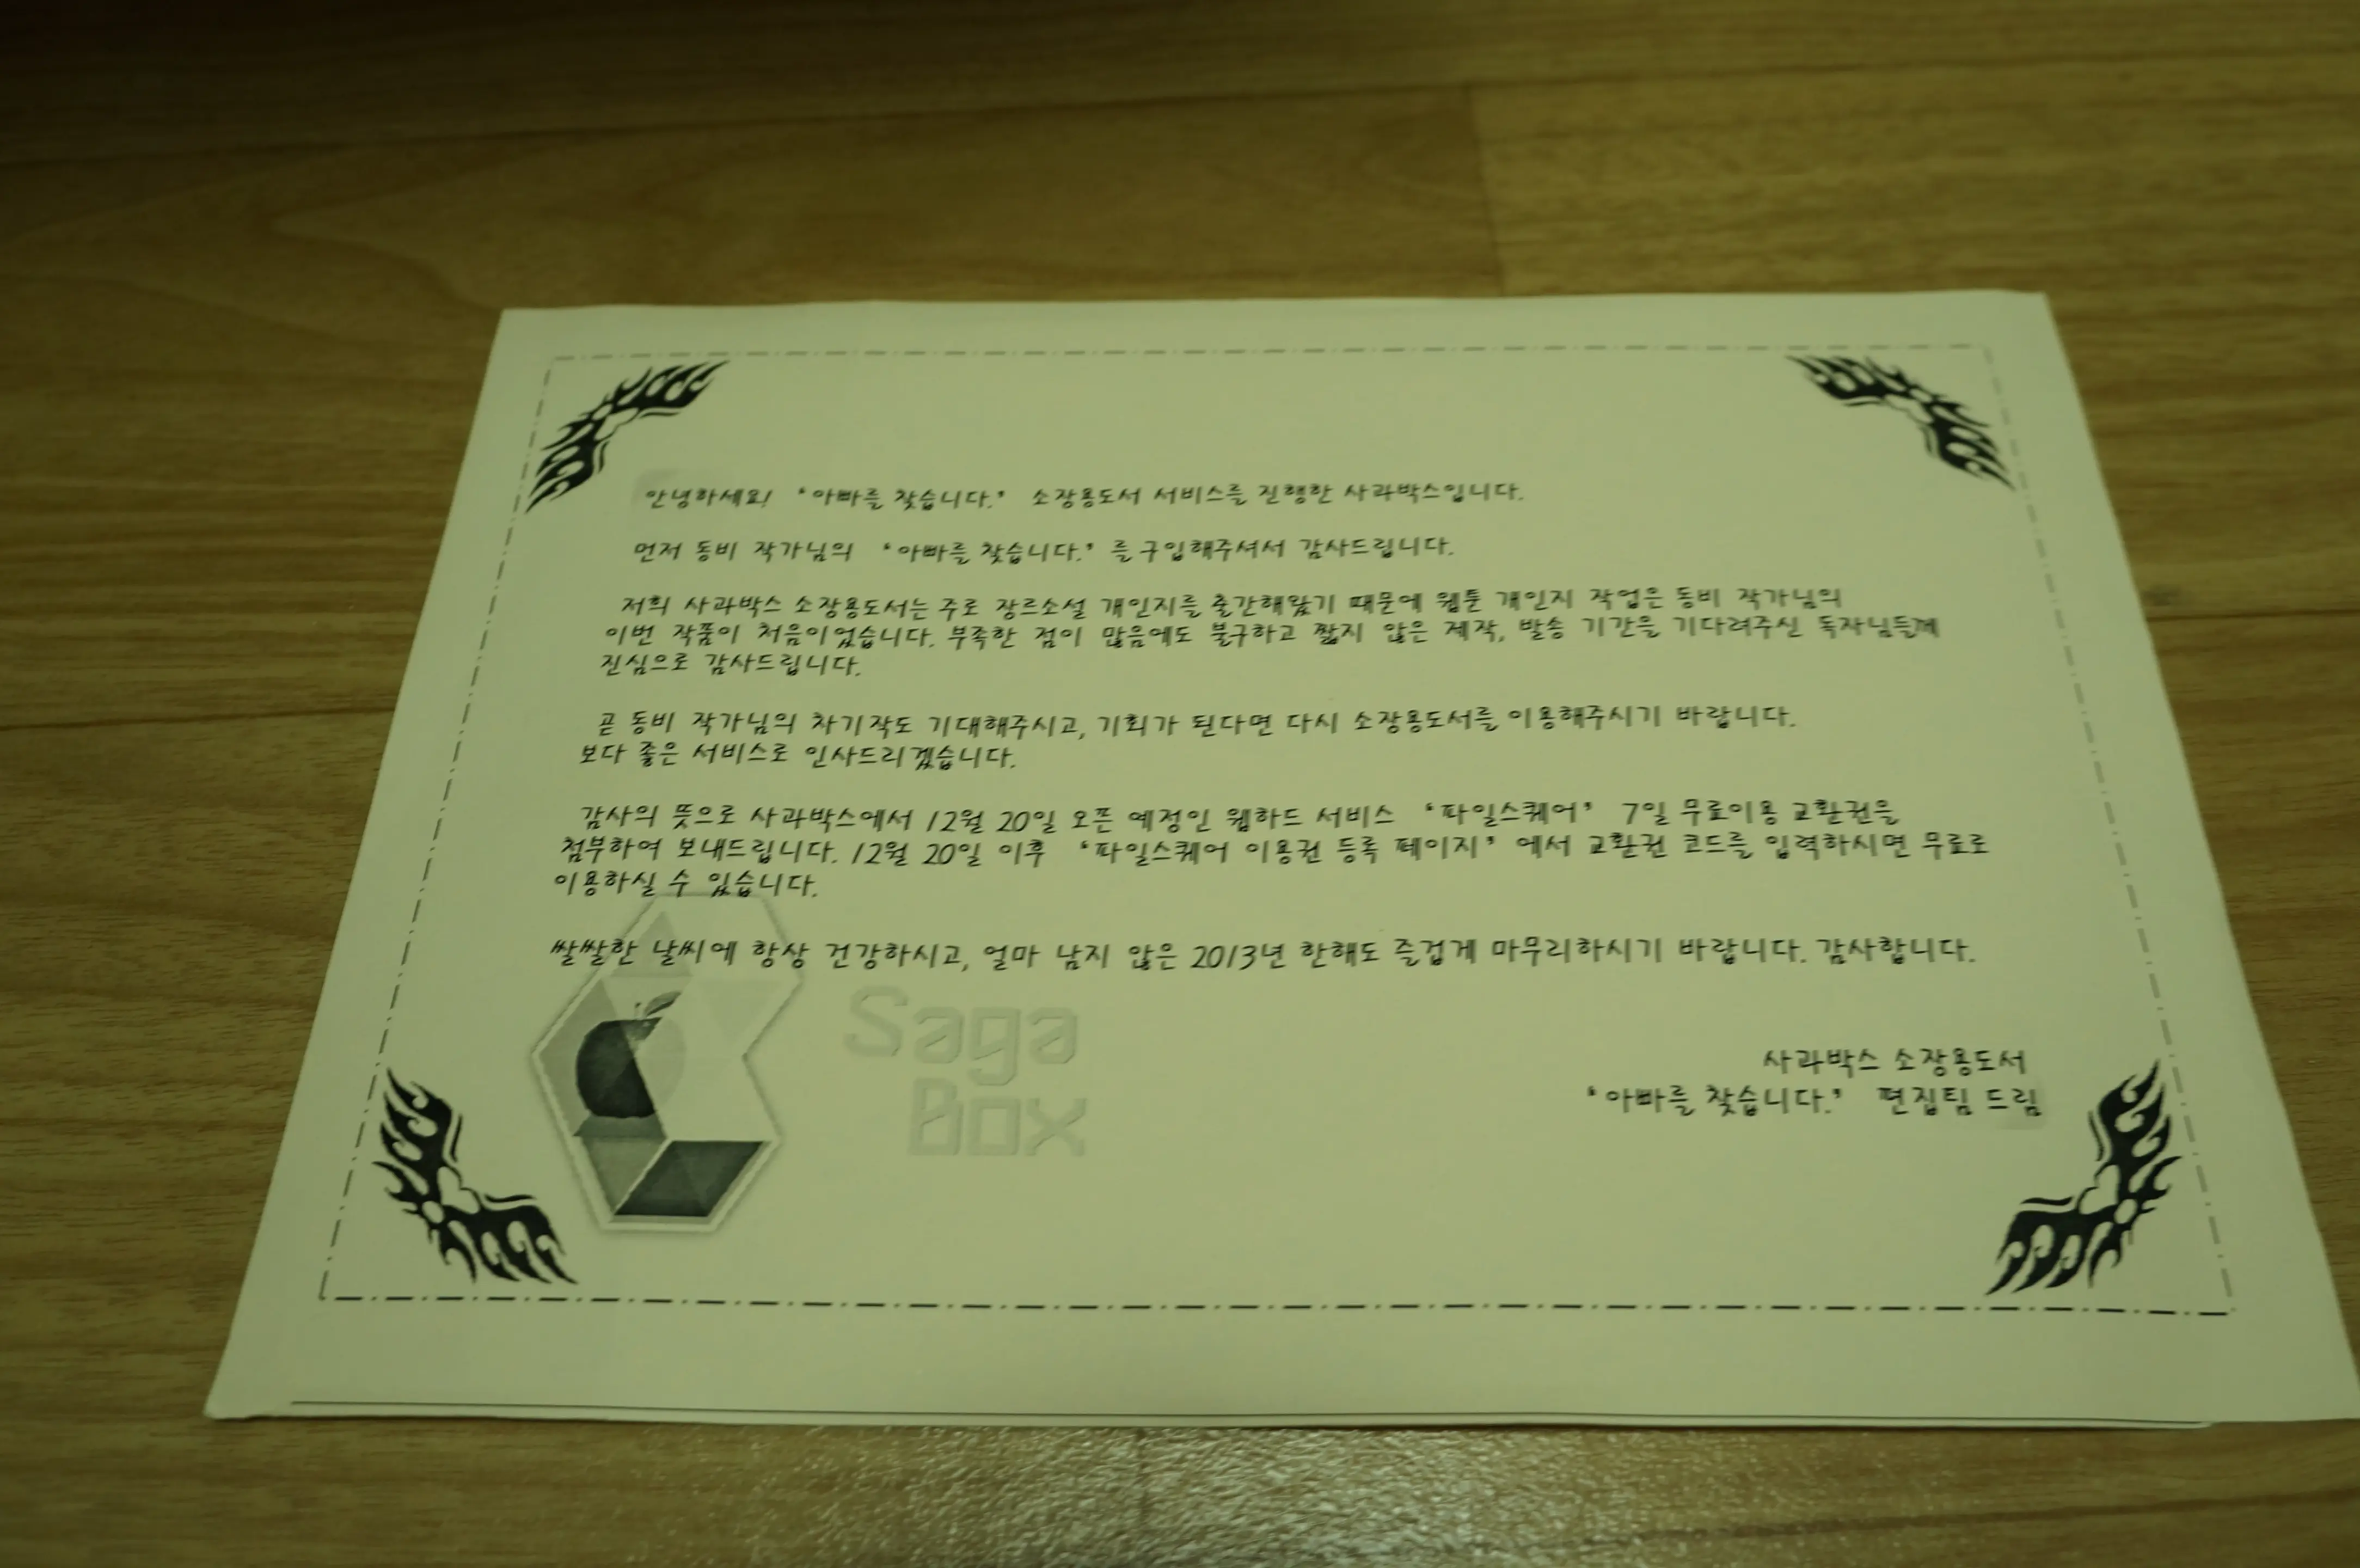 안녕하세요! '아빠를 찾습니다.' 소장용도서 서비스를 진행한 사과박스입니다.
먼저 동비 작가님의 '아빠를 찾습니다.' 를 구입해주셔서 감사드립니다.
저희 사과박스 소장용도서는 주로 장르소설 개인지를 출간해왔기 때문에 웹툰 개인지 작업은 동비 작가님의
이번 작품이 처음이었습니다. 부족한 점이 많음에도 불구하고 짧지 않은 제작, 발송 기간을 기다려주신 독자님들께
진심으로 감사드립니다.
곧 동비 작가님의 차기작도 기대해주시고, 기회가 된다면 다시 소장용도서를 이용해주시기 바랍니다.
보다 좋은 서비스로 인사드리겠습니다.
감사의 뜻으로 사과박스에서 12월 20일 오픈 예정인 웹하드 서비스 '파일스퀘어' 7일 무료이용 교환권을
첨부하여 보내드립니다. 12월 20일 이후 '파일스퀘어 이용권 등록 페이지' 에서 교환권 코드를 입력하시면 무료로
이용하실 수 있습니다.
쌀쌀한 날씨에 항상 건강하시고, 얼마 남지 않은 2013년 한해도 즐겁게 마무리하시기 바랍니다. 감사합니다.
Saga
Box
사과박스 소장용도서
'아빠를 찾습니다.' 편집팀 드림